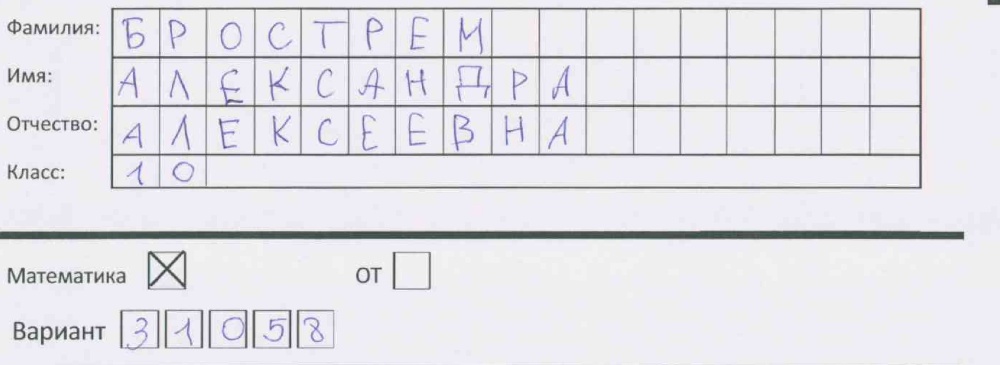 Фамилия: БРОСТРЕМ
Имя: АЛЕКСАНДРА
Отчество: АЛЕКСЕЕВНА
Класс: 10
Математика ☒ ОТ ☐
Вариант 31058